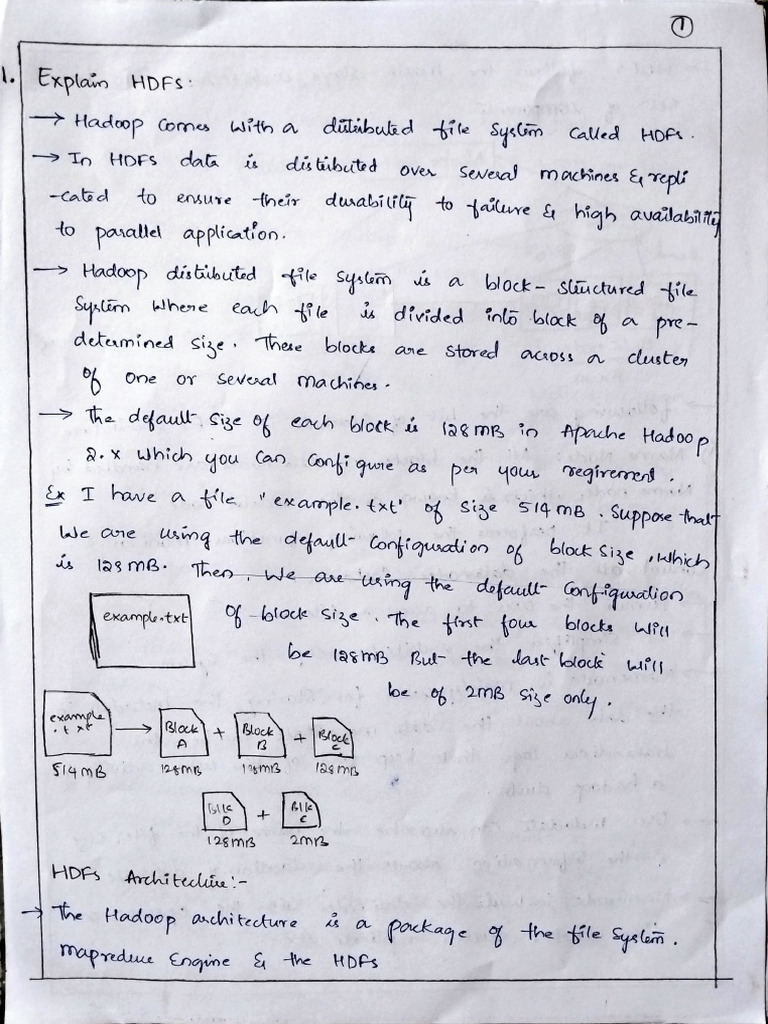 1
1. Explain HDFS:
→ Hadoop comes with a distributed file system called HDFS.
→ In HDFS data is distributed over several machines & repli
-cated to ensure their durability to failure & high availability
to parallel application.
→ Hadoop distributed file system is a block-structured file
System where each file is divided into block of a pre-
determined size. These blocks are stored across a cluster
of one or several machines.
→ The default size of each block is 128MB in Apache Hadoop
2.x which you can configure as per your regirement.
Ex I have a file 'example.txt' of size 514MB. Suppose that
We are using the default configuration of block size, which
is 128MB. Then, We are using the default configuration
example.txt of block size. The first four blocks will
be 128MB But the last block will
be of 2MB size only.
example.txt → Block A + Block B + Block C
514MB 128MB 128MB 128MB
Blk D + Blk E
128MB 2MB
HDFS Architecture:-
→ The Hadoop architecture is a package of the file system.
Mapreduce Engine & the HDFS